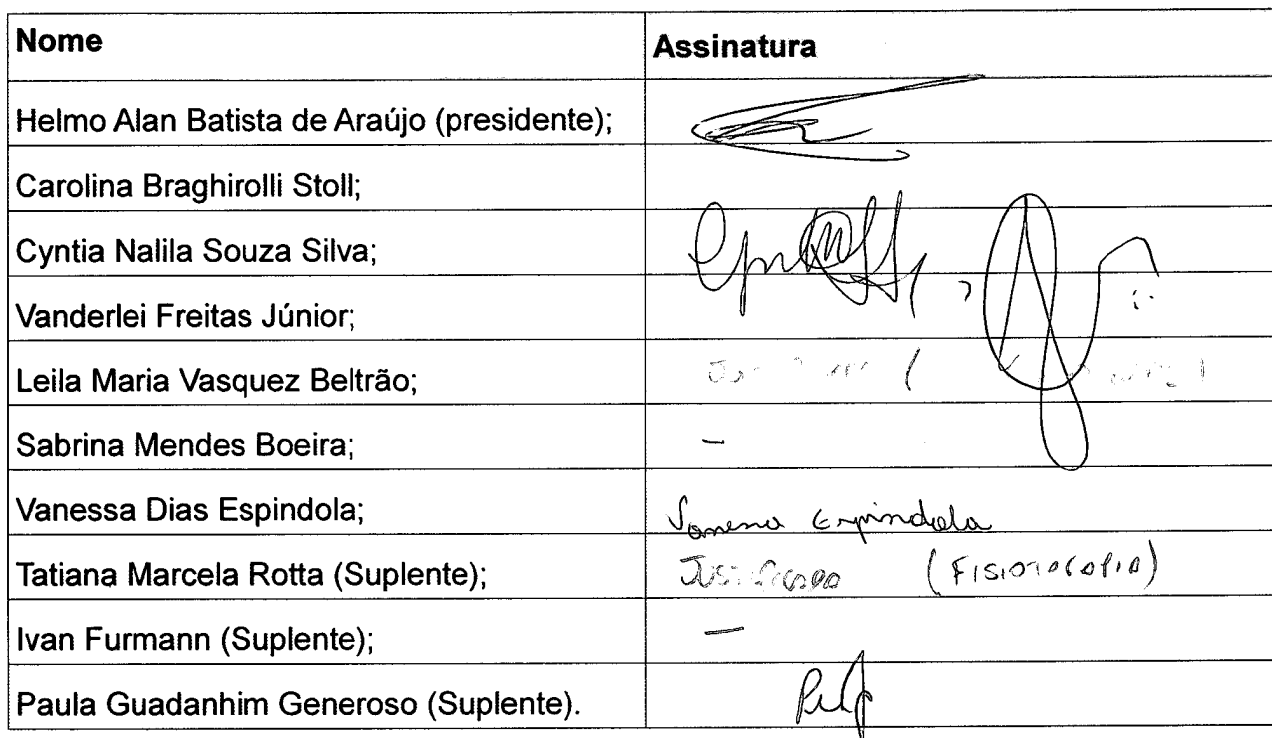 Nome Assinatura
Helmo Alan Batista de Araújo (presidente);
Carolina Braghirolli Stoll;
Cyntia Nalila Souza Silva;
Vanderlei Freitas Júnior;
Leila Maria Vasquez Beltrão;
Sabrina Mendes Boeira; –
Vanessa Dias Espindola; Vanessa Espindola
Tatiana Marcela Rotta (Suplente);
Ivan Furmann (Suplente); –
Paula Guadanhim Generoso (Suplente).